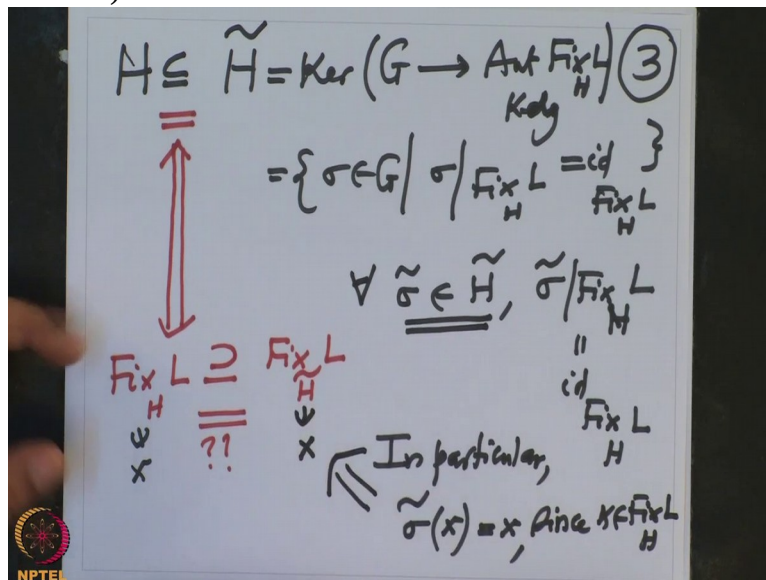 H ⊆ H̃ = Ker (G → Aut Fix_H L) ③
K-alg
= { σ ∈ G | σ | Fix_H L = id Fix_H L }
∀ σ̃ ∈ H̃, σ̃ | Fix_H L
||
id Fix_H L
Fix_H L ⊇ Fix_H̃ L
??
x x
In particular,
σ̃(x) = x, since x ∈ Fix_H L
NPTEL